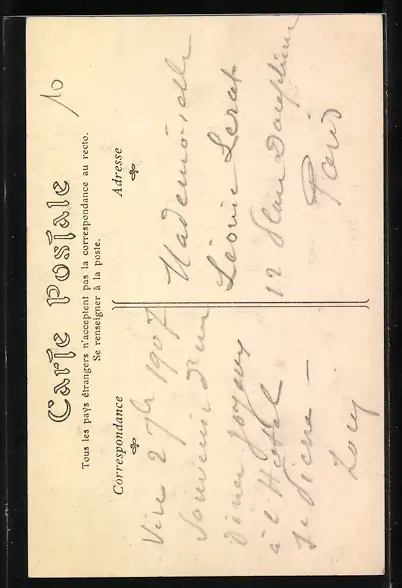 10
Carte Postale
Tous les pays étrangers n'acceptent pas la correspondance au recto.
Se renseigner à la poste.
Correspondance
Adresse
2 7bre 1907
Souvenir d'un
dîner joyeux
à l'Hotel
St Pierre –
Mademoiselle
Léonie Lerat
12 Place Dauphine
Paris